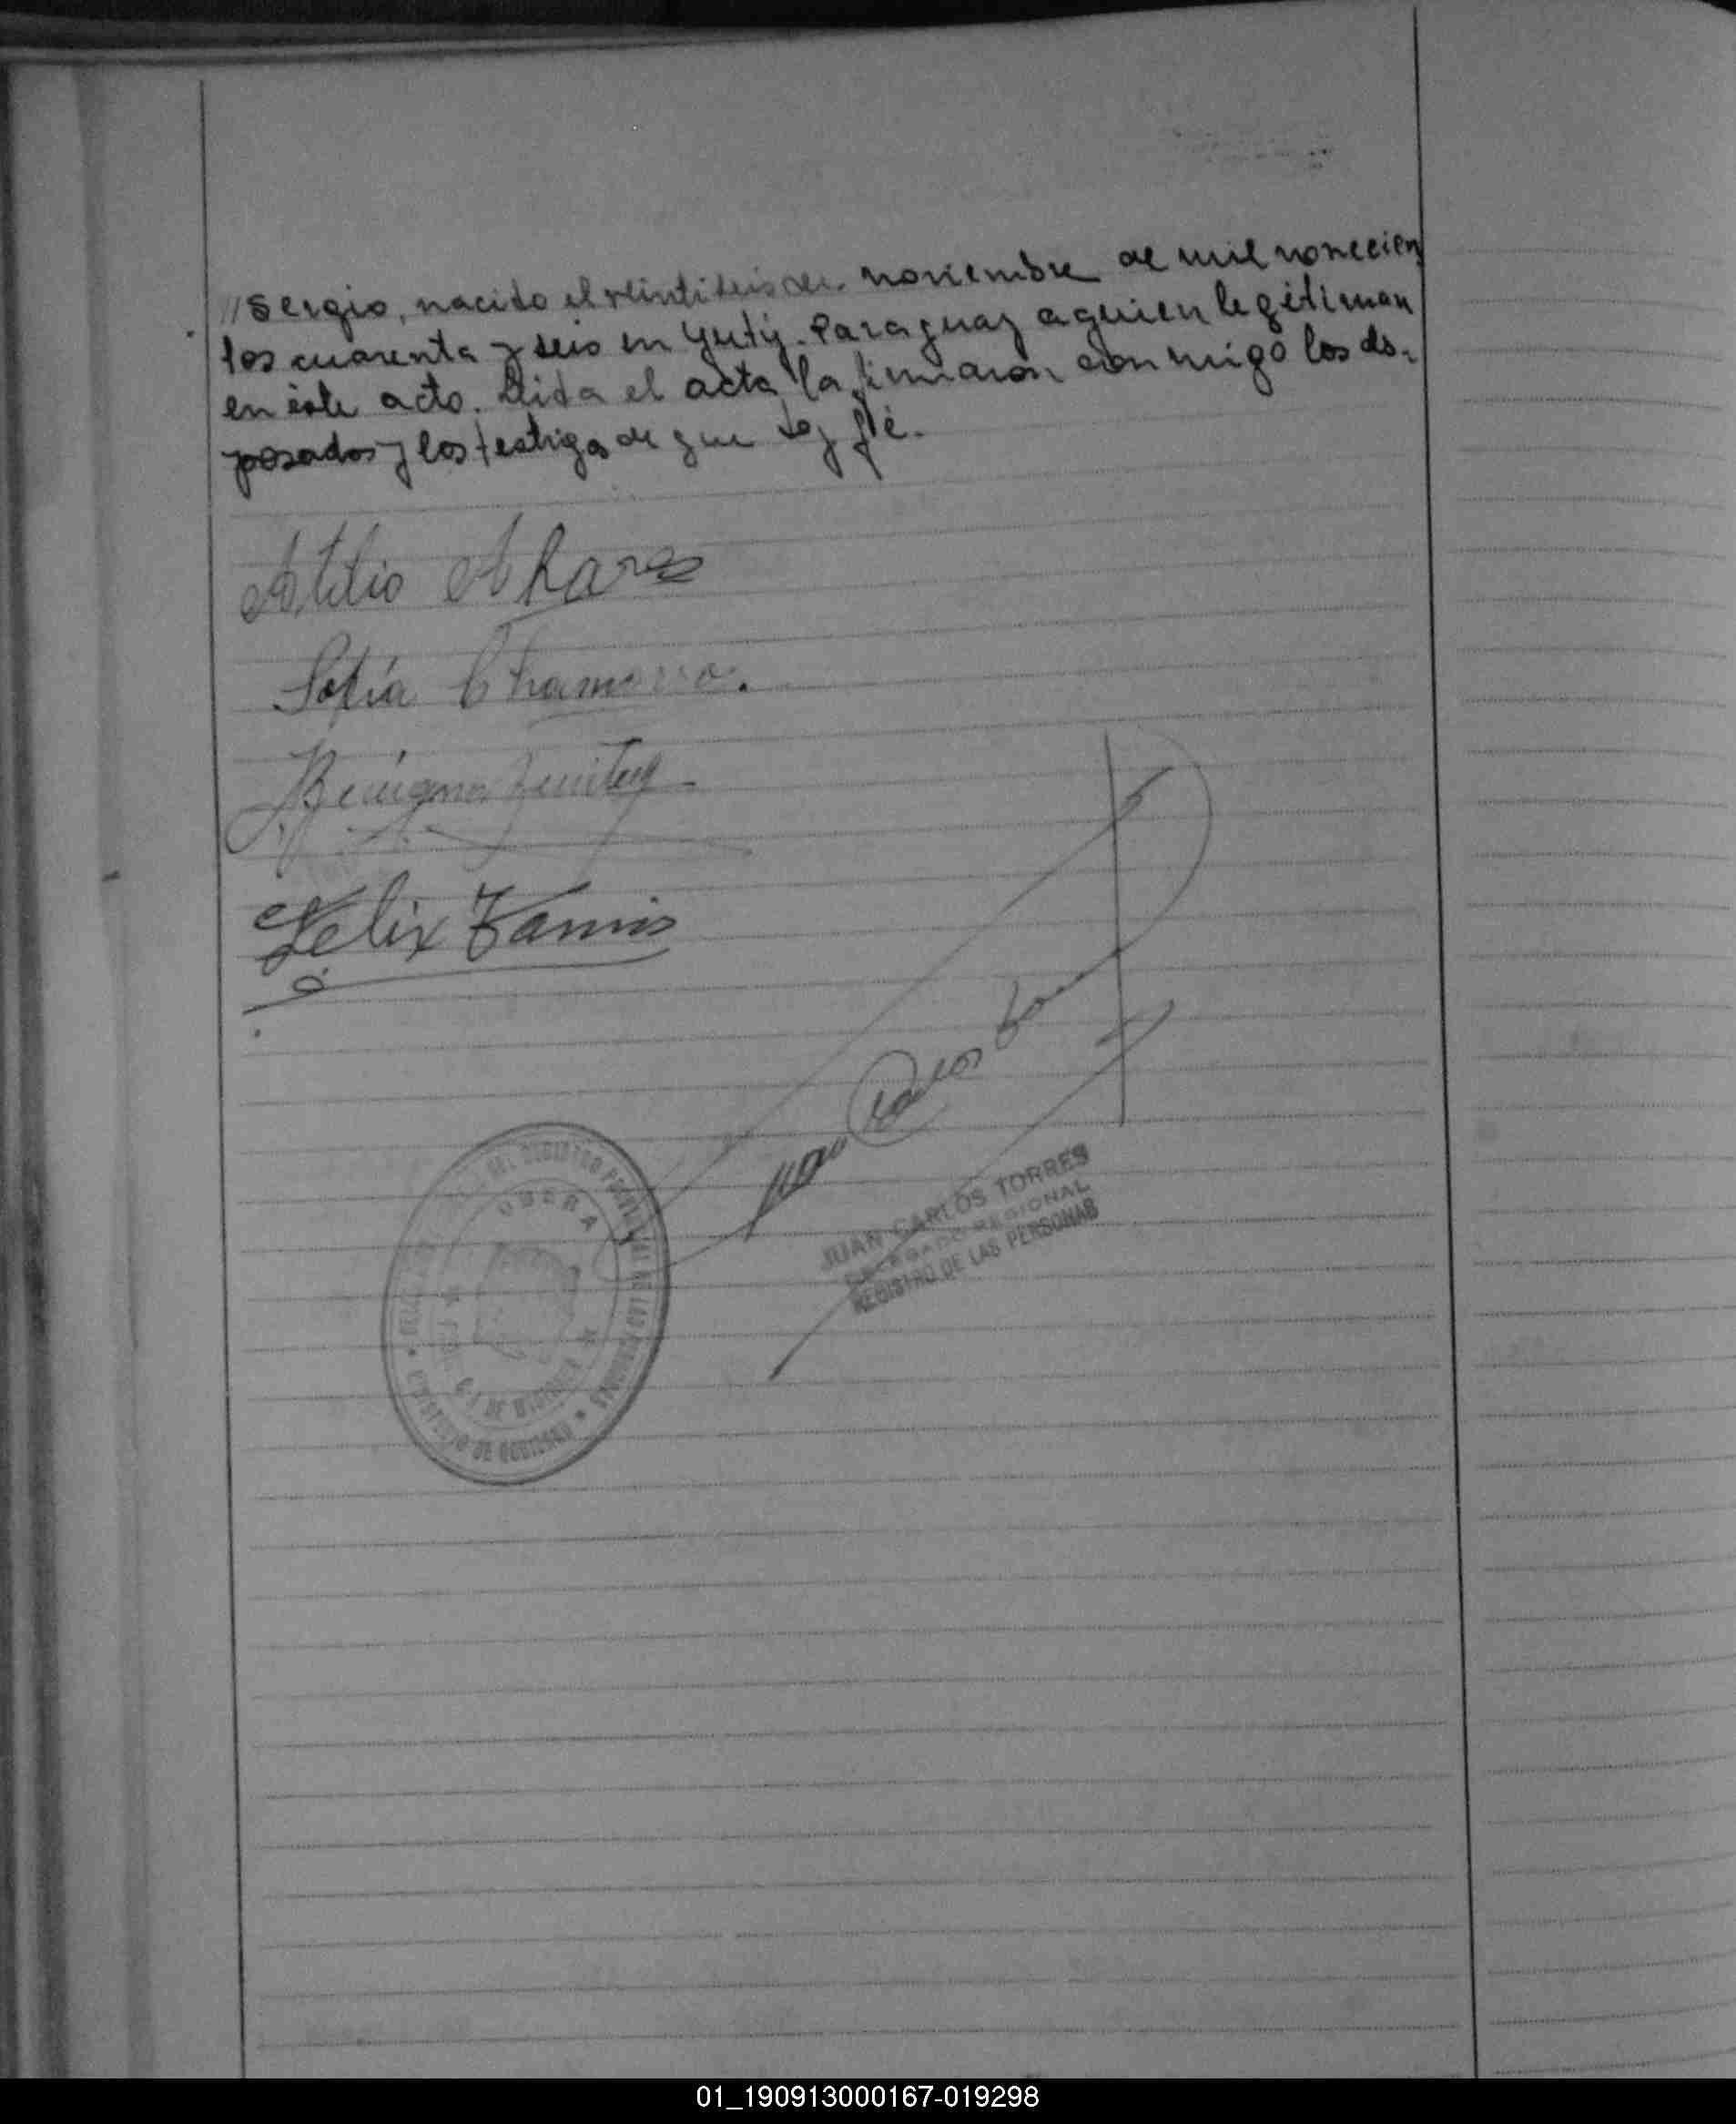 //Sergio, nacido el veintiseis de noviembre de mil novecien
tos cuarenta y seis en Yuty. Paraguay a quien legitiman
en éste acto. Leida el acta la firmaron conmigo los ds-
posados y los testigos de que doy fé.
Atilio
Sofía Chamorro.
Benigno
Felix
Juan Carlos
DEL REGISTRO PROVINCIAL DE LAS PERSONAS
OBERA
DE MISIONES
MINISTERIO DE GOBIERNO
JUAN CARLOS TORRES
DELEGADO REGIONAL
REGISTRO DE LAS PERSONAS
01_190913000167-019298